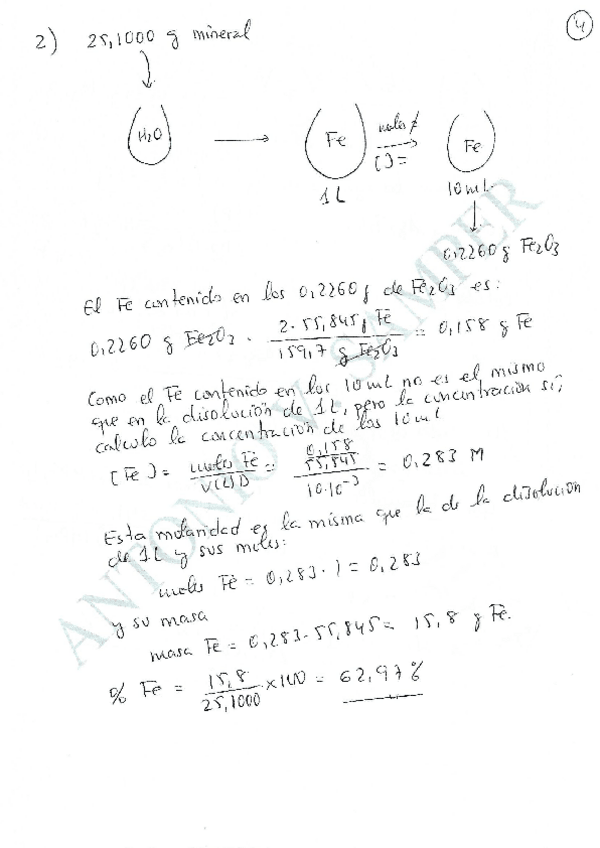 4
2) 25,1000 g mineral
H2O → Fe moles ≠ → Fe
[ ] =
1L 10 mL
0,2260 g Fe2O3
El Fe contenido en los 0,2260 g de Fe2O3 es:
0,2260 g Fe2O3 · 2·55,845 g Fe / 159,7 g Fe2O3 = 0,158 g Fe
Como el Fe contenido en los 10 mL no es el mismo
que en la disolución de 1L, pero la concentración sí,
calculo la concentración de los 10 ml
[Fe] = moles Fe / V(L)D = 0,158/55,845 / 10·10⁻³ = 0,283 M
Esta molaridad es la misma que la de la disolución
de 1L y sus moles:
moles Fe = 0,283 · 1 = 0,283
y su masa
masa Fe = 0,283 · 55,845 = 15,8 g Fe.
% Fe = 15,8 / 25,1000 × 100 = 62,97 %
ANTONIO V. SAMPER